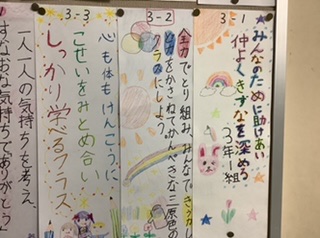 3-1
みんなのために助けあい
仲よくきずなを深める
3年1組
3-2
全力でとり組み、みんなできょう力し
をかさねてかんぺきな三原色の
クラスにしよう。
3-3
心も体もけんこうに
こせいをみとめ合い
しっかり学べるクラス
一人一人の気持ちを考え、
すなおな気持ちでありがとう